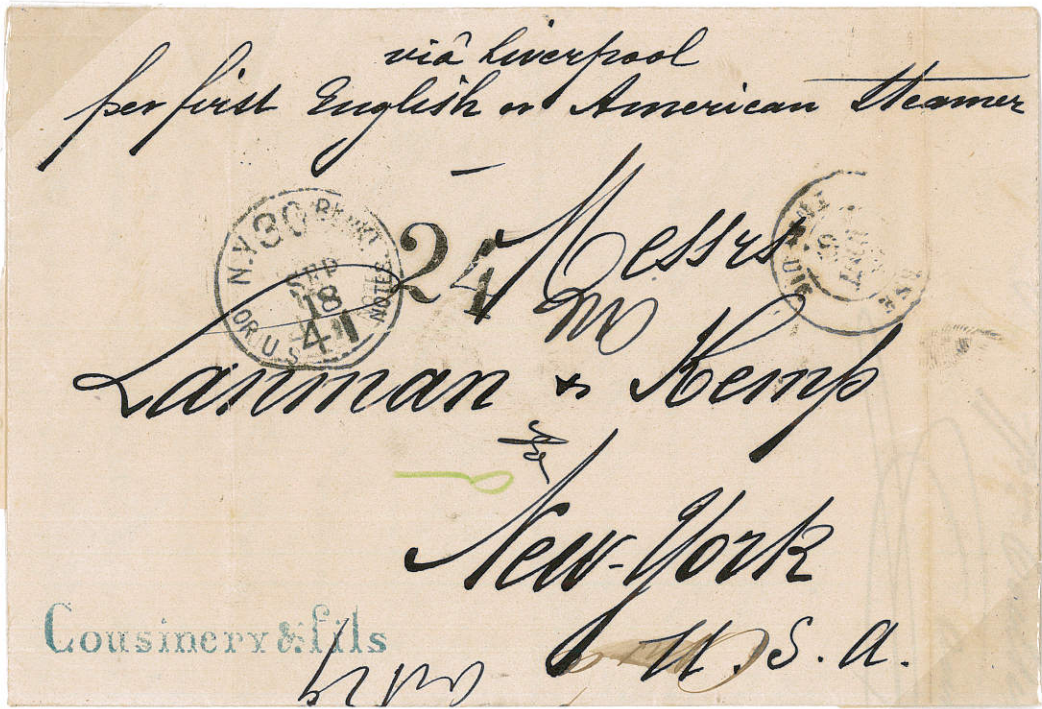 viâ Liverpool
per first English or American Steamer
24
N.Y. 30
SEP
18
41
OR U.S. NOTES
Messrs
Lanman & Kemp
New-York
U.S.A.
Cousinery & fils